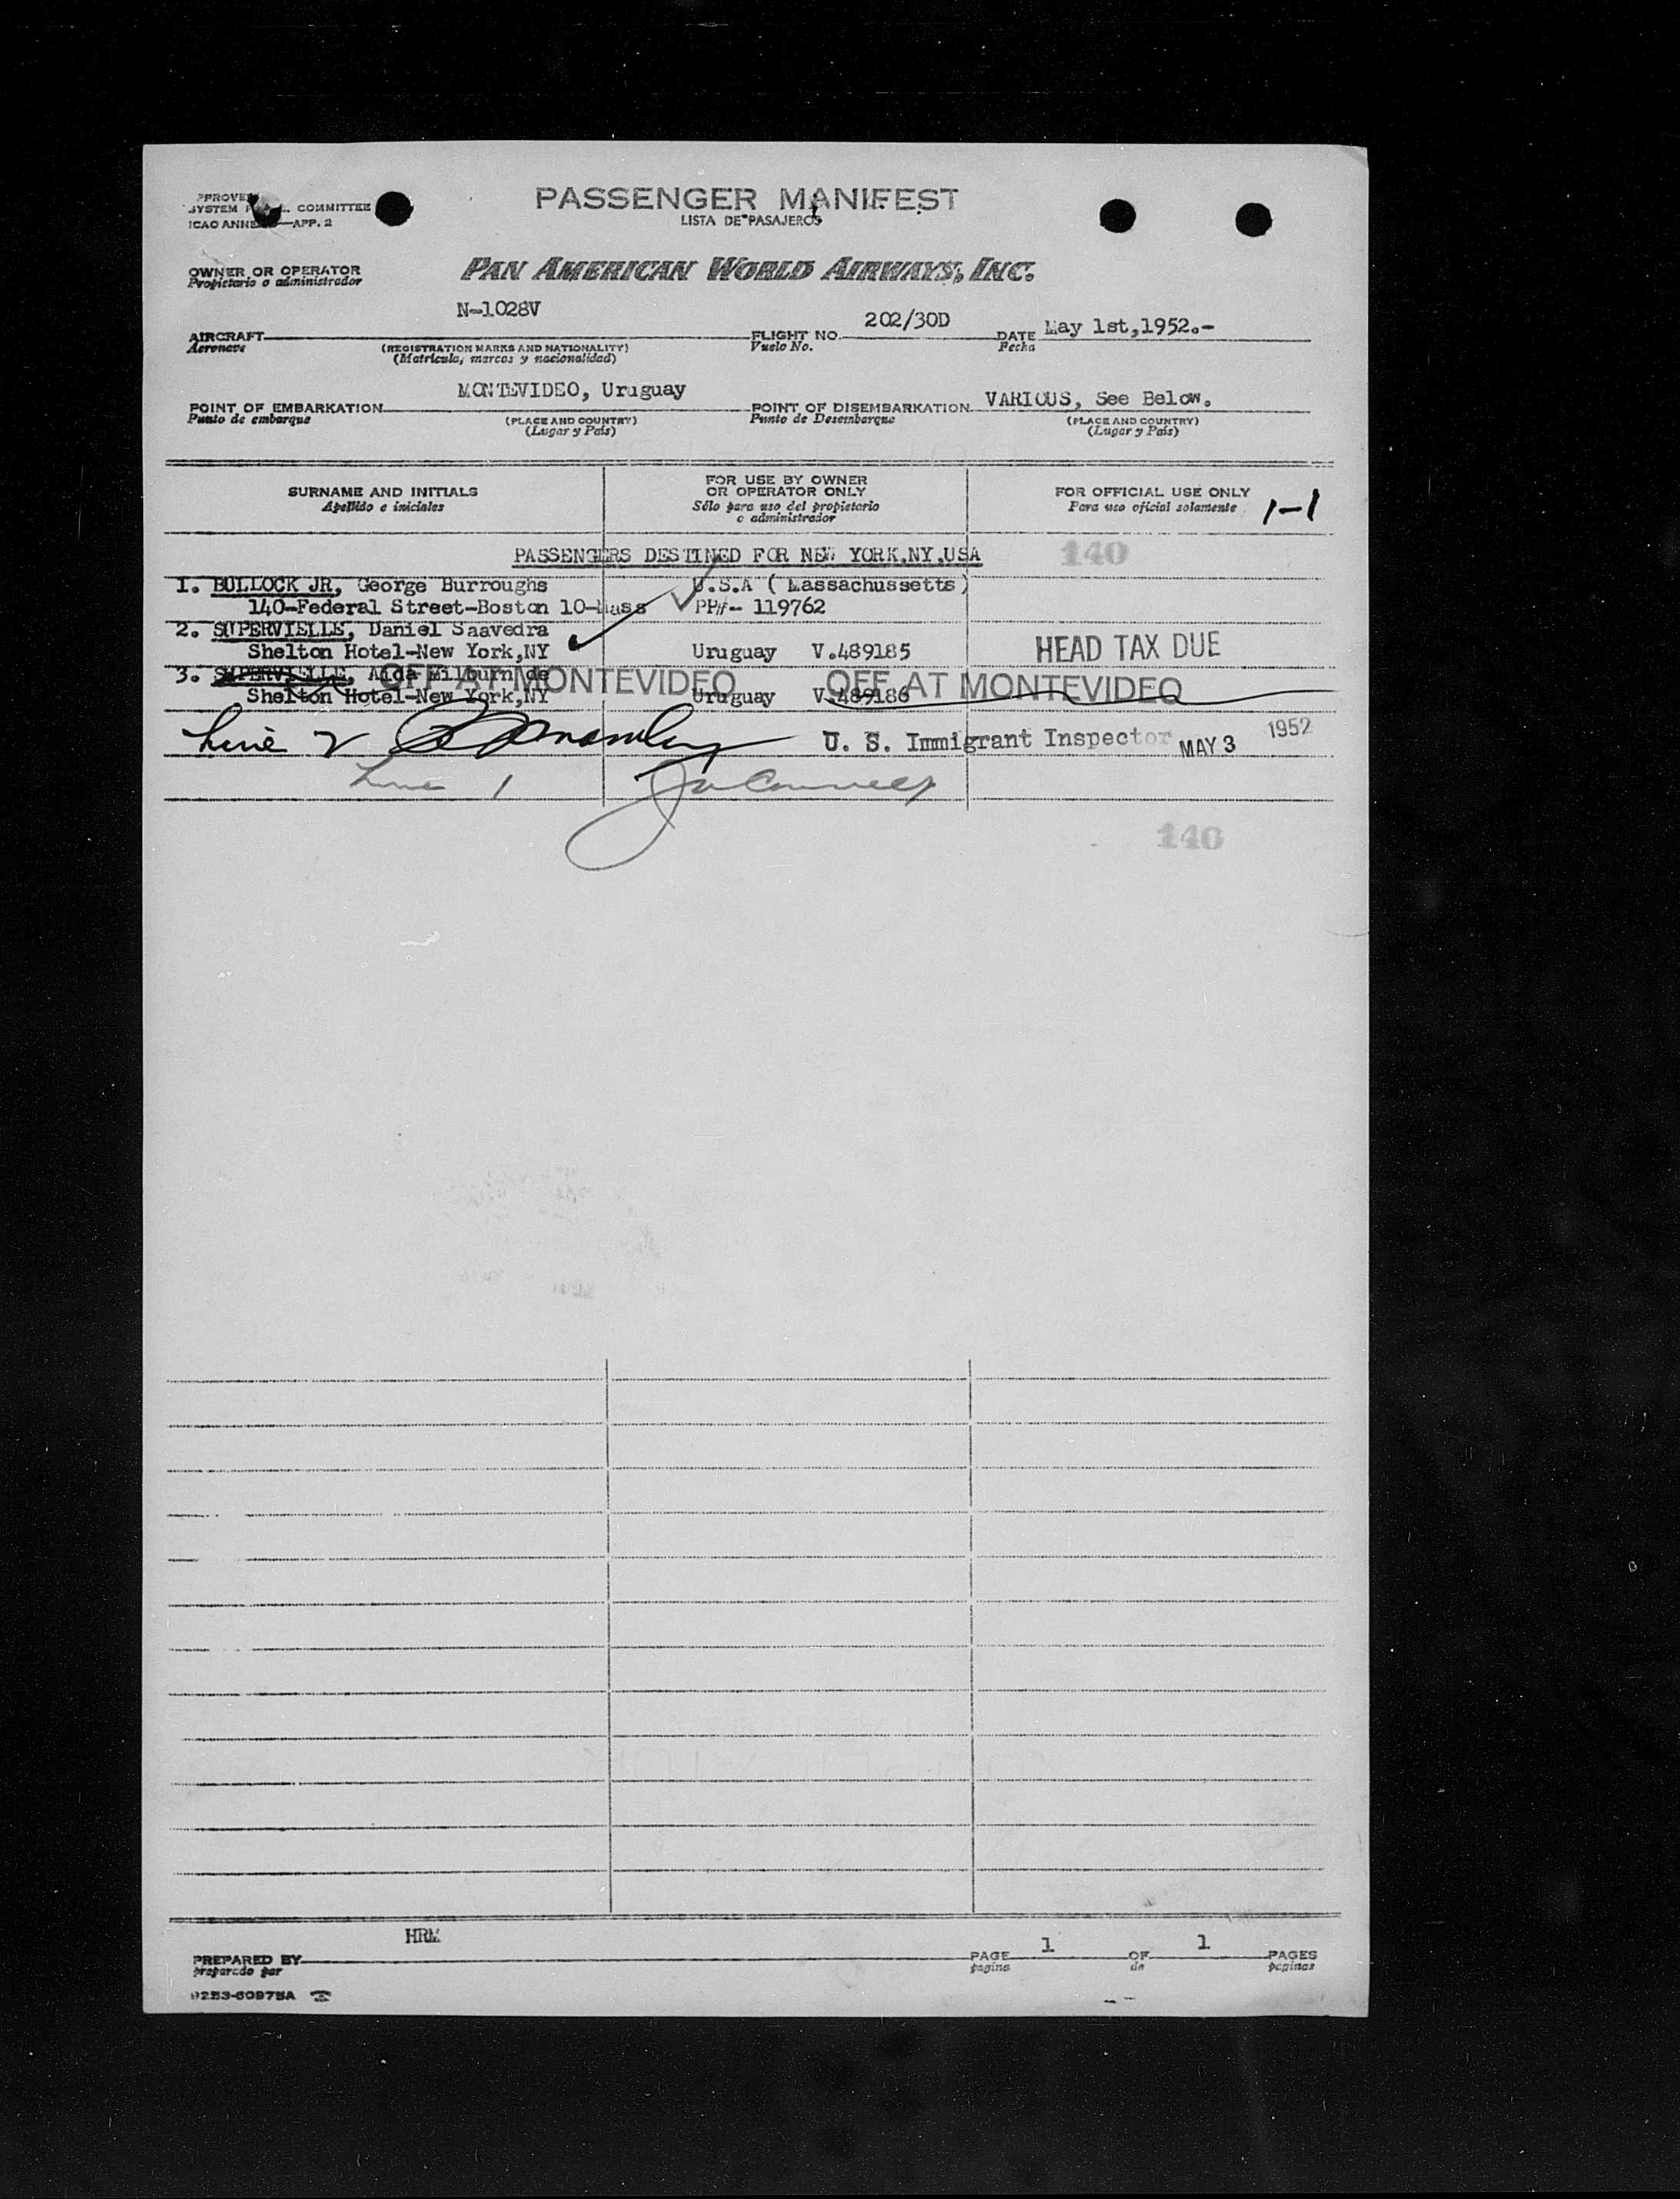 PASSENGER MANIFEST
LISTA DE PASAJEROS
SYSTEM COMMITTEE
ICAO APP. 2
OWNER OR OPERATOR
Propietario o administrador
PAN AMERICAN WORLD AIRWAYS, INC.
N-1028V 202/30D May 1st,1952.-
AIRCRAFT FLIGHT NO. DATE
Aeronave (REGISTRATION MARKS AND NATIONALITY) Vuelo No. Fecha
(Matrícula, marcas y nacionalidad)
MONTEVIDEO, Uruguay VARIOUS, See Below.
POINT OF EMBARKATION POINT OF DISEMBARKATION
Punto de embarque (PLACE AND COUNTRY) Punto de Desembarque (PLACE AND COUNTRY)
(Lugar y País) (Lugar y País)
SURNAME AND INITIALS FOR USE BY OWNER OR OPERATOR ONLY FOR OFFICIAL USE ONLY 1-1
Apellido e iniciales Sólo para uso del propietario o administrador Para uso oficial solamente
PASSENGERS DESTINED FOR NEW YORK,NY,USA 140
1. BULLOCK JR, George Burroughs U.S.A ( Massachussetts)
140-Federal Street-Boston 10-Mass PP#- 119762
2. SUPERVIELLE, Daniel Saavedra
Shelton Hotel-New York,NY Uruguay V.489185 HEAD TAX DUE
3. SUPERVIELLE, Aida Milburn de
OFF AT MONTEVIDEO OFF AT MONTEVIDEO
Shelton Hotel-New York,NY Uruguay V.489186
Line 2 U. S. Immigrant Inspector MAY 3 1952
Line 1
140
HRM 1 1
PREPARED BY PAGE OF PAGES
preparado por pagina de paginas